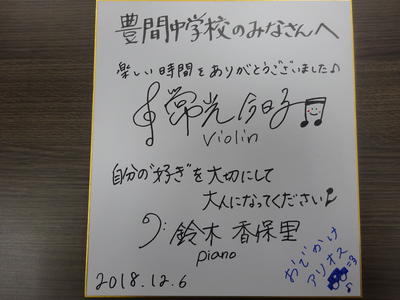 豊間中学校のみなさんへ
楽しい時間をありがとうございました♪
常光今日子
violin
自分の"好き"を大切にして
大人になってください♪
鈴木 香保里
piano
おでかけ
アリオス
2018.12.6